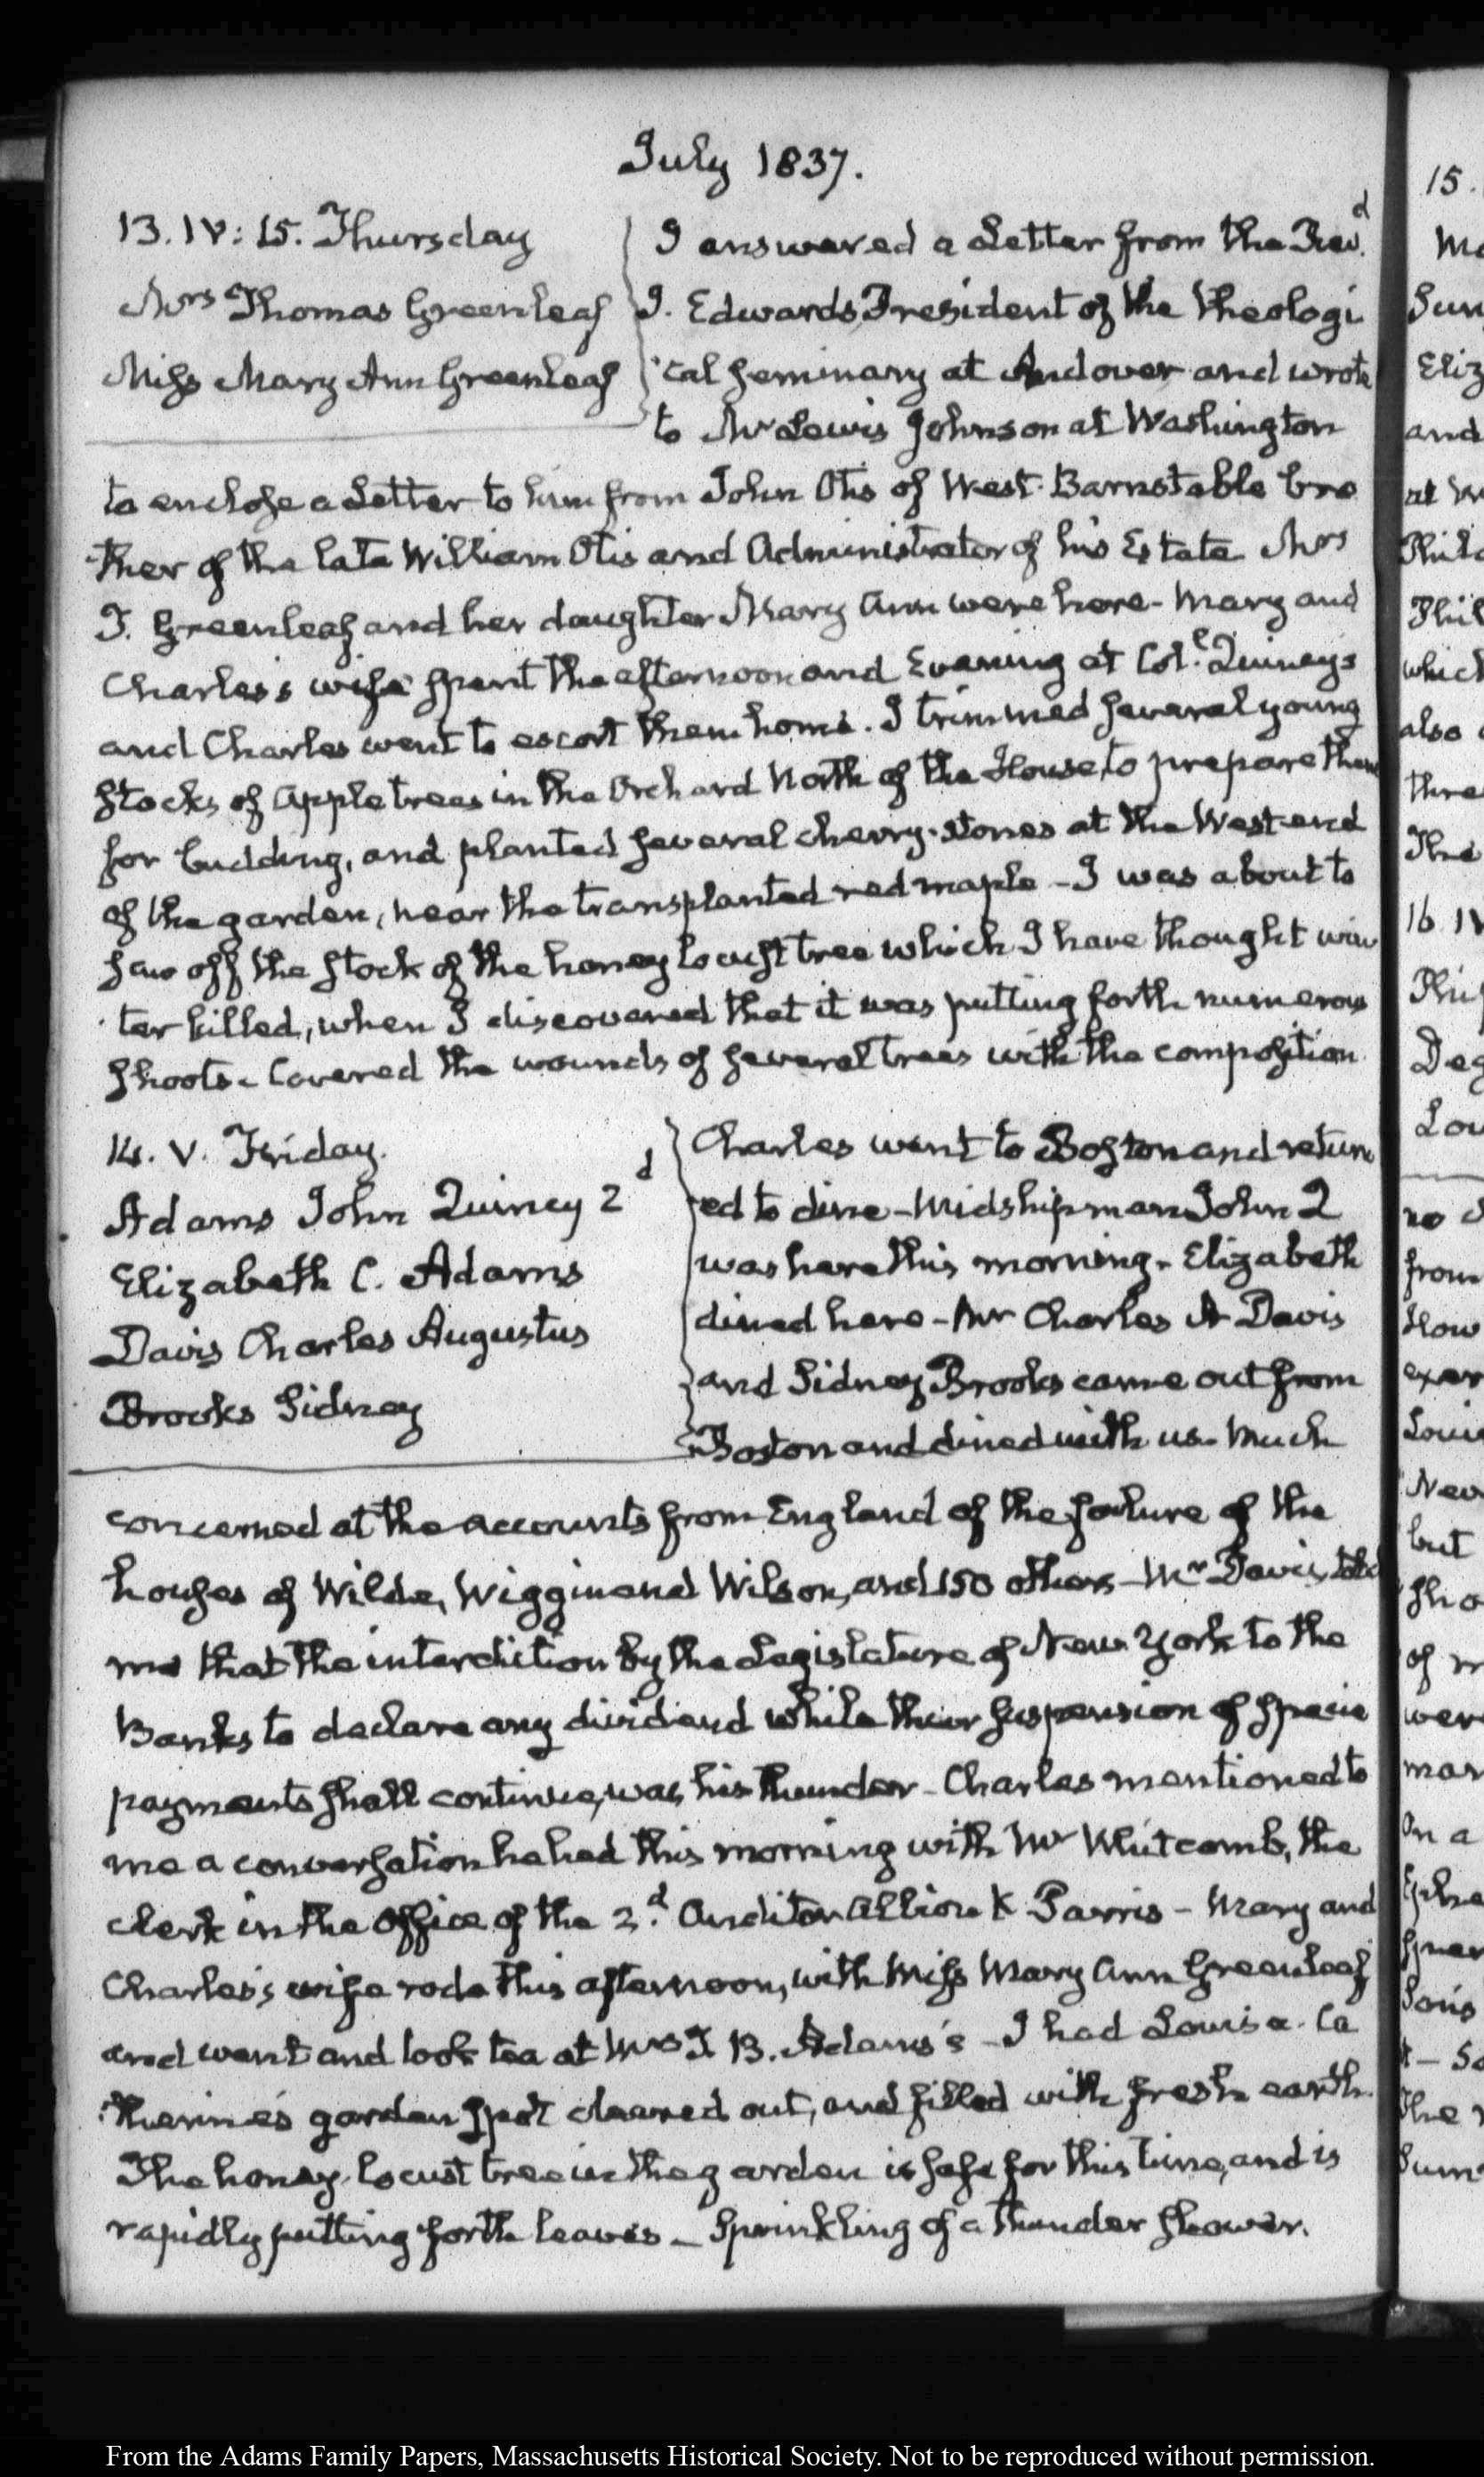 July 1837.
13. IV: 15. Thursday
Mrs Thomas Greenleaf
Miss Mary Ann Greenleaf
I answered a Letter from the Revd.
J. Edwards, President of the Theologi
cal Seminary at Andover and wrote
to Mr Lewis Johnson at Washington
to enclose a Letter to him from John Otis of West-Barnstable bro
ther of the late William Otis and Administrator of his Estate Mrs
T. Greenleaf and her daughter Mary Ann were here - Mary and
Charles's wife spent the afternoon and Evening at Col. Quincy's
and Charles went to escort them home. I trimmed several young
stocks of apple trees in the Orchard North of the House, to prepare them
for budding, and planted several cherry-stones at the West-end
of the garden, near the transplanted red maple - I was about to
saw off the stock of the honey locust tree which I have thought win
ter killed, when I discovered that it was putting forth numerous
shoots. Covered the wounds of several trees with the composition
14. V. Friday.
Adams John Quincy 2d
Elizabeth C. Adams
Davis Charles Augustus
Brooks Sidney
Charles went to Boston and return
ed to dine - Midshipman John Q
was here this morning - Elizabeth
dined here - Mr Charles A Davis
and Sidney Brooks came out from
Boston and dined with us. Much
concerned at the accounts from England of the failure of the
houses of Wilde, Wiggin and Wilson, and 150 others - Mr Davis told
me that the interdiction by the Legislature of New-York to the
Banks to declare any dividend while their suspension of specie
payments shall continue, was his thunder - Charles mentioned to
me a conversation he had this morning with Mr Whitcomb, the
clerk in the Office of the 2d. Auditor Albion K Parris - Mary and
Charles's wife rode this afternoon, with Miss Mary Ann Greenleaf
and went and took tea at Mrs T B. Adams's - I had Louisa Ca
therine's garden spot cleared out, and filled with fresh earth.
The honey-locust tree in the garden is safe for this time, and is
rapidly putting forth leaves - Sprinkling of a thunder shower.
15.
Sun
Eliz
and
at W
Phil
which
also
three
The
16 IV
Lou
no
from
How
exer
Loui
New
but
sho
of
wer
mar
On a
The
Sum
From the Adams Family Papers, Massachusetts Historical Society. Not to be reproduced without permission.